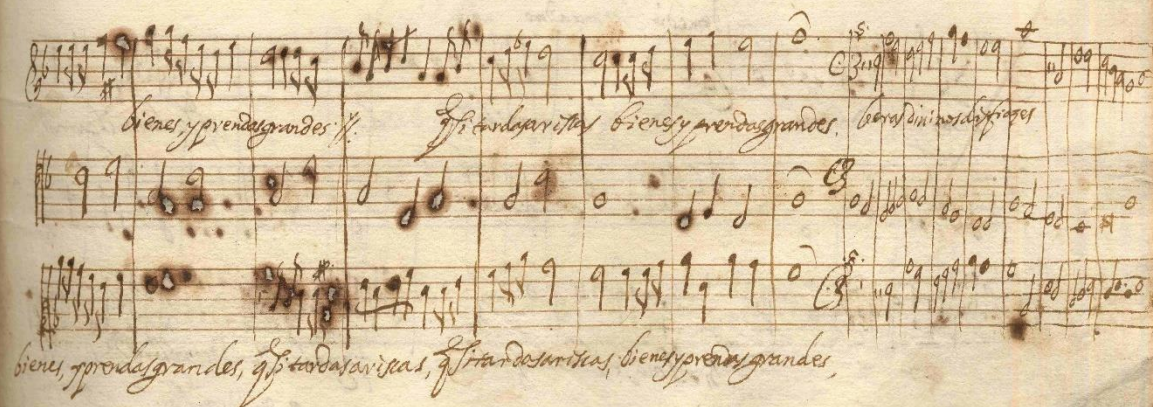 bienes, y prendas grandes //. q̃ si tardas ariscas bienes y prendas grandes. beras diuinos disfraçes
bienes, y prendas grandes, q̃ si tardas ariscas, q̃ si tardas ariscas, bienes y prendas grandes,